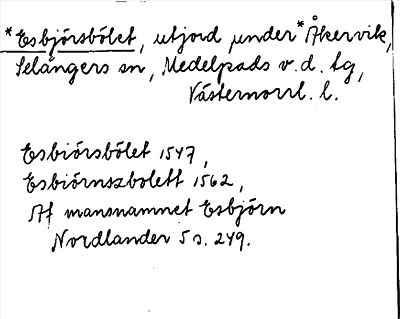 *Esbjörsbölet, utjord under *Åkervik,
Selångers sn, Medelpads v. d. tg,
Västernorrl. l.
Esbiörsbölet 1547,
Esbiörnszbolett 1562,
Af mansnamnet Esbjörn
Nordlander 5 s. 249.